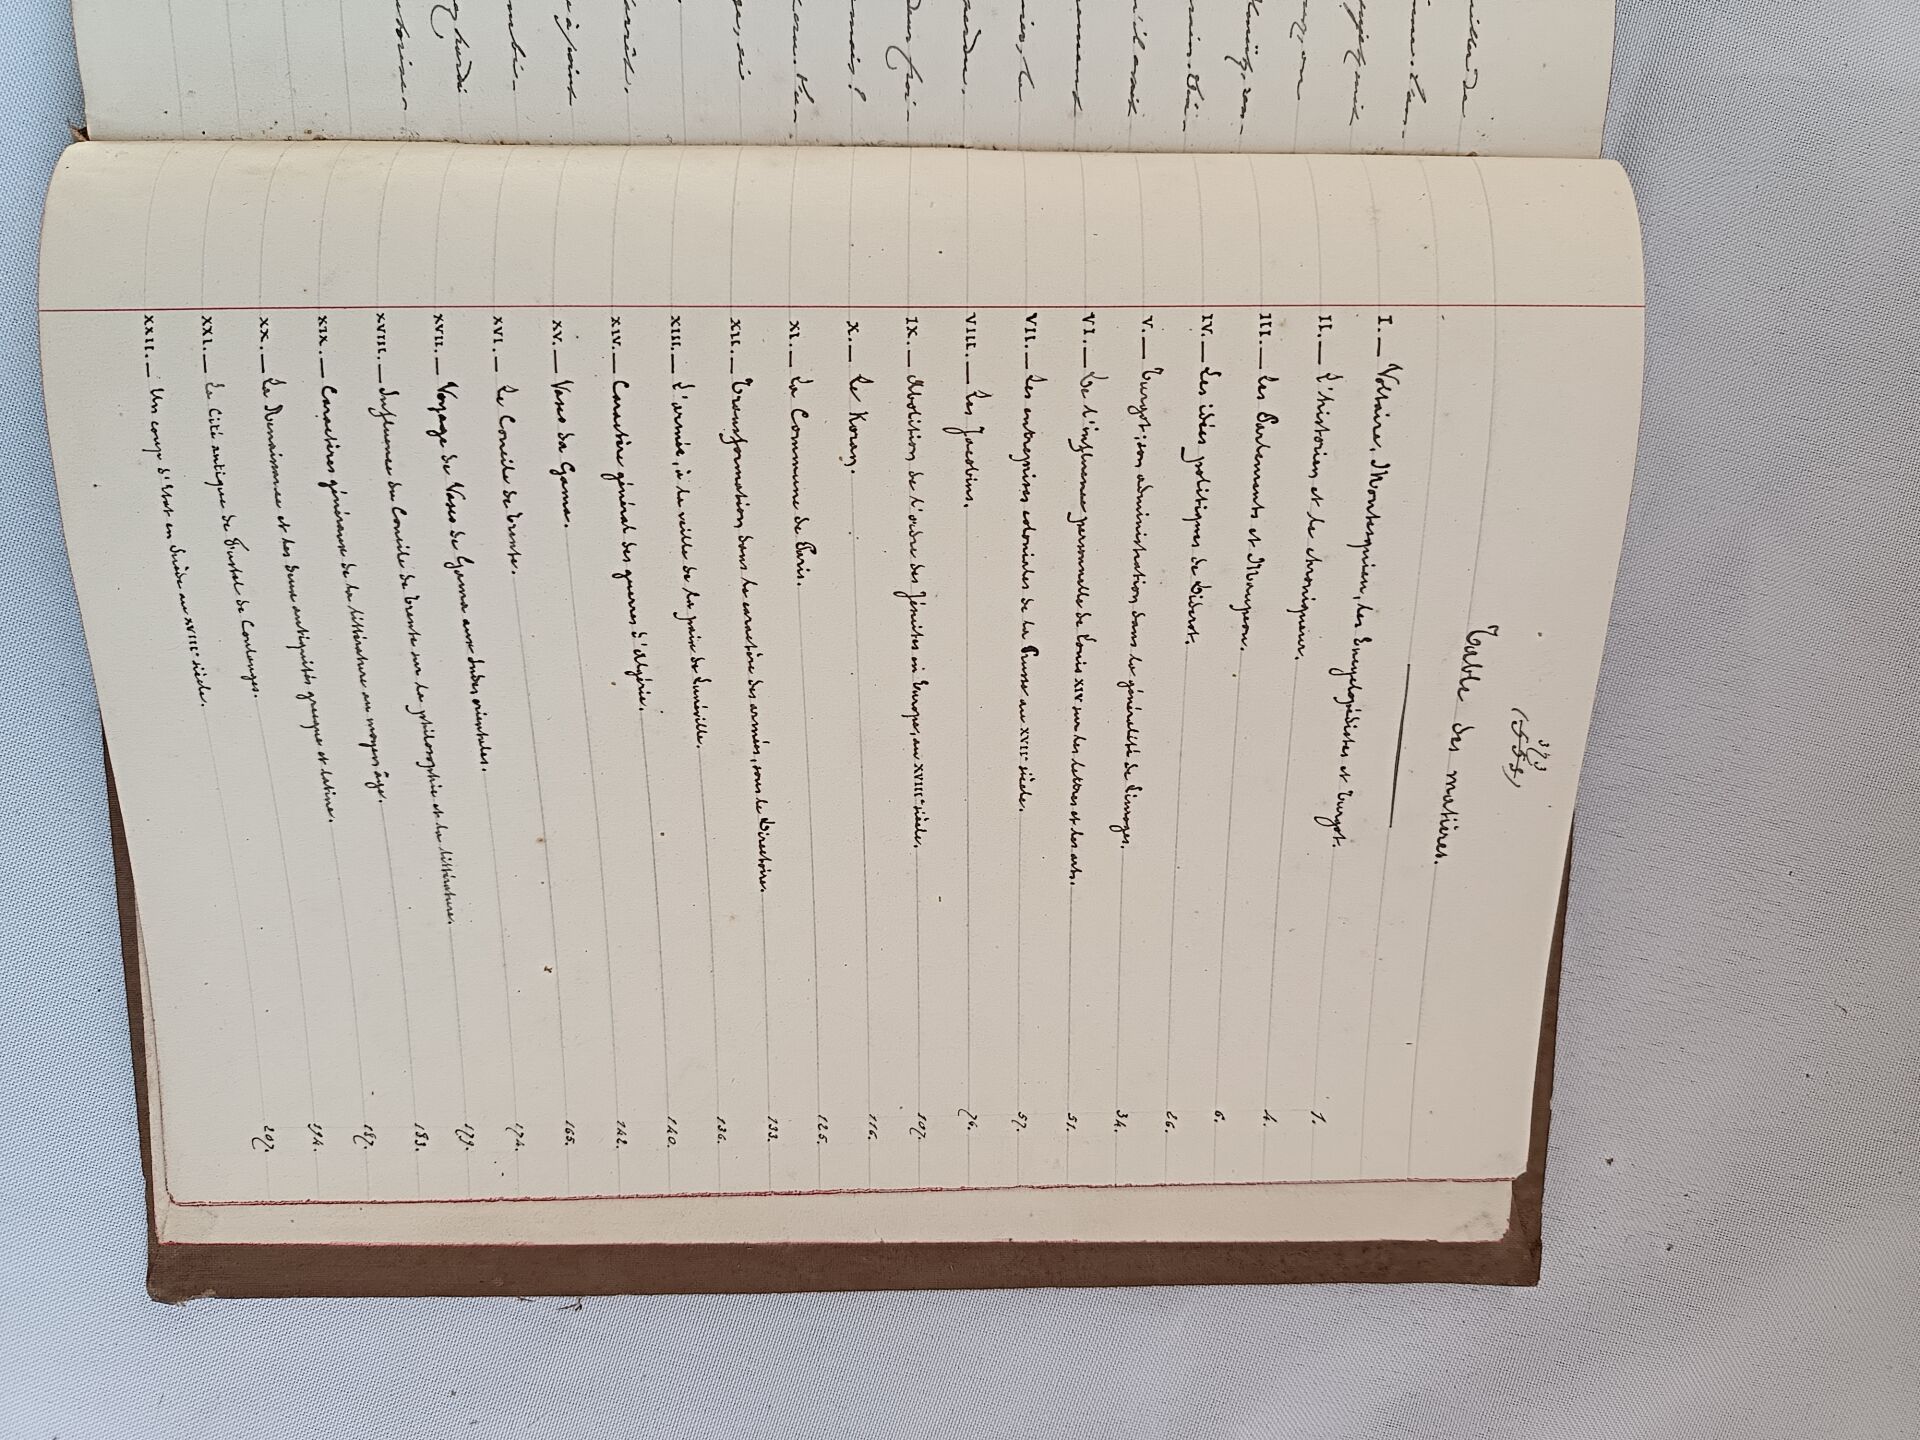 Table des matières.
I. — Voltaire, Montesquieu, les Encyclopédistes et Turgot. 1.
II. — L'historien et le chroniqueur. 4.
III. — Les Parlements et Maupeou. 6.
IV. — Les idées politiques de Diderot. 26.
V. — Turgot; son administration dans la généralité de Limoges. 34.
VI. — De l'influence personnelle de Louis XIV sur les lettres et les arts. 51.
VII. — Les entreprises coloniales de la Prusse au XVIIe siècle. 57.
VIII. — Les Jacobins. 76.
IX. — Abolition de l'ordre des Jésuites en Europe, au XVIIIe siècle. 107.
X. — Le Koran. 116.
XI. — La Commune de Paris. 125.
XII. — Transformation dans le caractère des armées, sous le Directoire. 133.
XIII. — L'armée, à la veille de la paix de Lunéville. 136.
XIV. — Caractère général des guerres d'Algérie. 140.
XV. — Vasco de Gama. 142.
XVI. — Le Concile de Trente. 165.
XVII. — Voyage de Vasco de Gama aux Indes orientales. 174.
XVIII. — Influence du Concile de Trente sur la philosophie et la littérature. 179.
XIX. — Caractères généraux de la littérature au moyen âge. 183.
XX. — La Renaissance et les deux antiquités grecque et latine. 187.
XXI. — La Cité antique de Fustel de Coulanges. 194.
XXII. — Un coup d'Etat en Suède au XVIIIe siècle. 207.